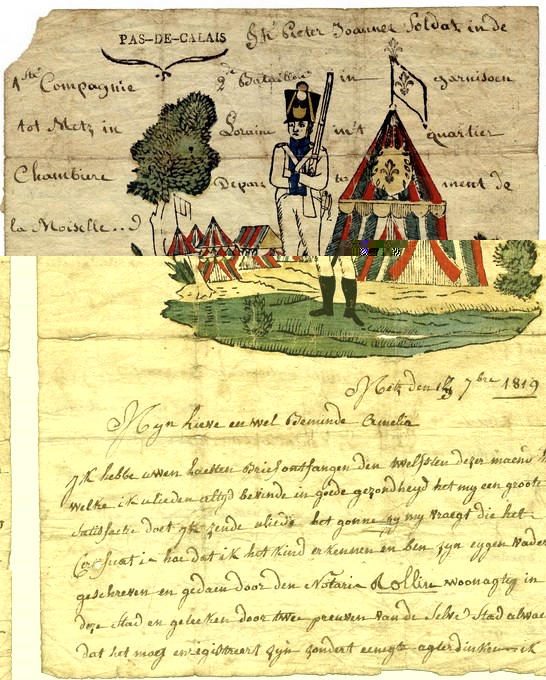 PAS-DE-CALAIS
Ik Pieter Joannes Soldat in de
1ste Compagnie 2de Bataillon in garnisoen
tot Metz in Loraine in't quartier
Chambiere Depar te ment de
la Moiselle..d
Metz den 7bre 1819
Myn Lieve en wel Beminde Amelia
Ik hebbe uwen Laesten Brief ontfangen den twelfsten dezer maend
welke ik ulieden altyd bevinde in goede gezondheyd het my een groote
satisfactie doet Ik zende ulieds het gonne gy my vraegt die het
hoe dat ik het kind erkennen en ben zyn eygen Vader
geschreven en gedaen door den Notaris Rollin woonagtig in
deze Stad en geleeken door twee preuven van de Selve Stad alwaer
dat het moet enregistreert zyn zondert eenigte agterdinken ik